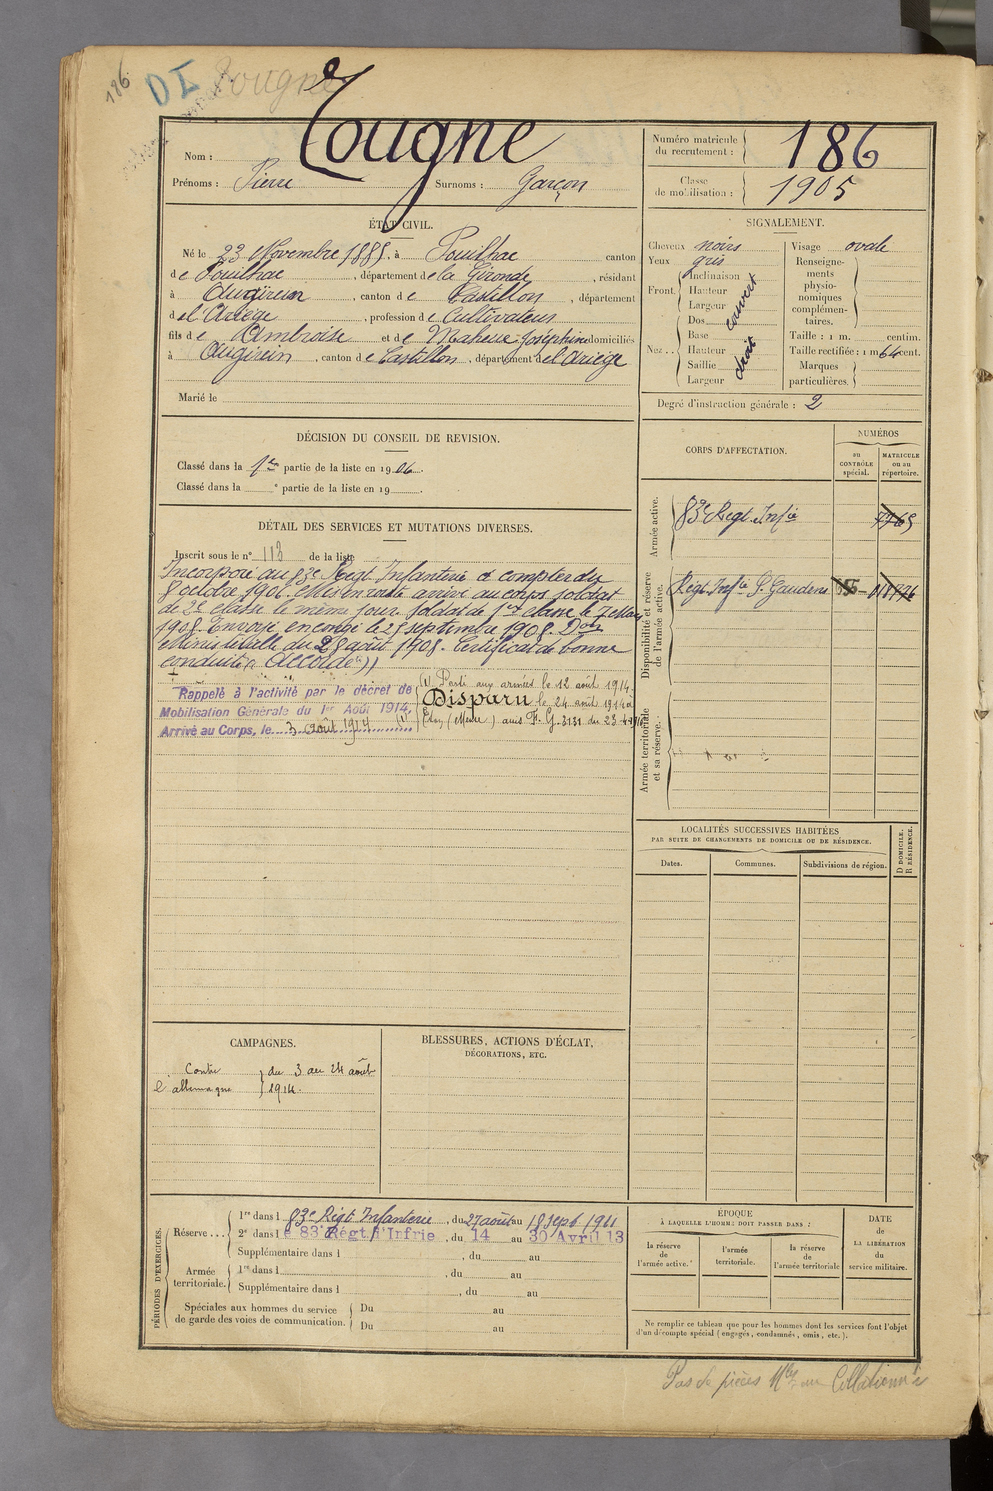 186
DI Rougne
Nom : Tougne
Prénoms : Pierre Surnoms : Garçon
Numéro matricule du recrutement : 186
Classe de mobilisation : 1905
ÉTAT CIVIL.
Né le 23 Novembre 1885, à Pouilhac canton
de Pouilhac, département de la Gironde, résidant
à Augirein, canton de Castillon, département
de l'Ariège, profession de Cultivateur
fils de Ambroise et de Maheux Joséphine domiciliés
à Augirein, canton de Castillon, département de l'Ariège
Marié le
SIGNALEMENT.
Cheveux noirs
Yeux gris
Front. Inclinaison
Hauteur couvert
Largeur
Nez... Dos
Base
Hauteur droit
Saillie
Largeur
Visage ovale
Renseignements physionomiques complémentaires.
Taille : 1 m. centim.
Taille rectifiée : 1 m 64 cent.
Marques particulières.
Degré d'instruction générale : 2
DÉCISION DU CONSEIL DE REVISION.
Classé dans la 1re partie de la liste en 1906.
Classé dans la ° partie de la liste en 19 .
DÉTAIL DES SERVICES ET MUTATIONS DIVERSES.
Inscrit sous le n° 113 de la liste
Incorporé au 83e Régt Infanterie à compter du
8 octobre 1906. Mis en route arrivé au corps soldat
de 2e classe le même jour. Soldat de 1re classe le
1908. Envoyé en congé le 25 septembre 1908. Don
Ministérielle du 28 août 1908. Certificat de bonne
conduite "Accordé"
Rappelé à l'activité par le décret de
Mobilisation Générale du 1er Août 1914,
Arrivé au Corps, le 3 août 1914 (1)
(1) Parti aux armées le 12 août 1914.
Disparu le 24 août 1914 à
Etoy (Meuse) avis F. G. 3131 du 23-4-1916
CORPS D'AFFECTATION.
NUMÉROS
au CONTRÔLE spécial.
MATRICULE ou au répertoire.
Armée active.
83e Régt Infie
Disponibilité et réserve de l'armée active.
Régt Infie St Gaudens
Armée territoriale et sa réserve.
LOCALITÉS SUCCESSIVES HABITÉES
PAR SUITE DE CHANGEMENTS DE DOMICILE OU DE RÉSIDENCE.
Dates. Communes. Subdivisions de région.
D DOMICILE.
R RÉSIDENCE.
CAMPAGNES.
Contre l'allemagne } du 3 au 24 août 1914.
BLESSURES, ACTIONS D'ÉCLAT,
DÉCORATIONS, ETC.
PÉRIODES D'EXERCICES.
Réserve... 1re dans l 83e Régt Infanterie, du 27 août au 18 sept 1911
2e dans le 83 Régt d'Infrie, du 14 au 30 Avril 13
Supplémentaire dans l , du au
Armée territoriale. 1re dans l , du au
Supplémentaire dans l , du au
Spéciales aux hommes du service de garde des voies de communication. Du au
Du au
ÉPOQUE
À LAQUELLE L'HOMME DOIT PASSER DANS :
la réserve de l'armée active.
l'armée territoriale.
la réserve de l'armée territoriale
DATE de LA LIBÉRATION du service militaire.
Ne remplir ce tableau que pour les hommes dont les services font l'objet
d'un décompte spécial (engagés, condamnés, omis, etc.).
Pas de pièces Mles au